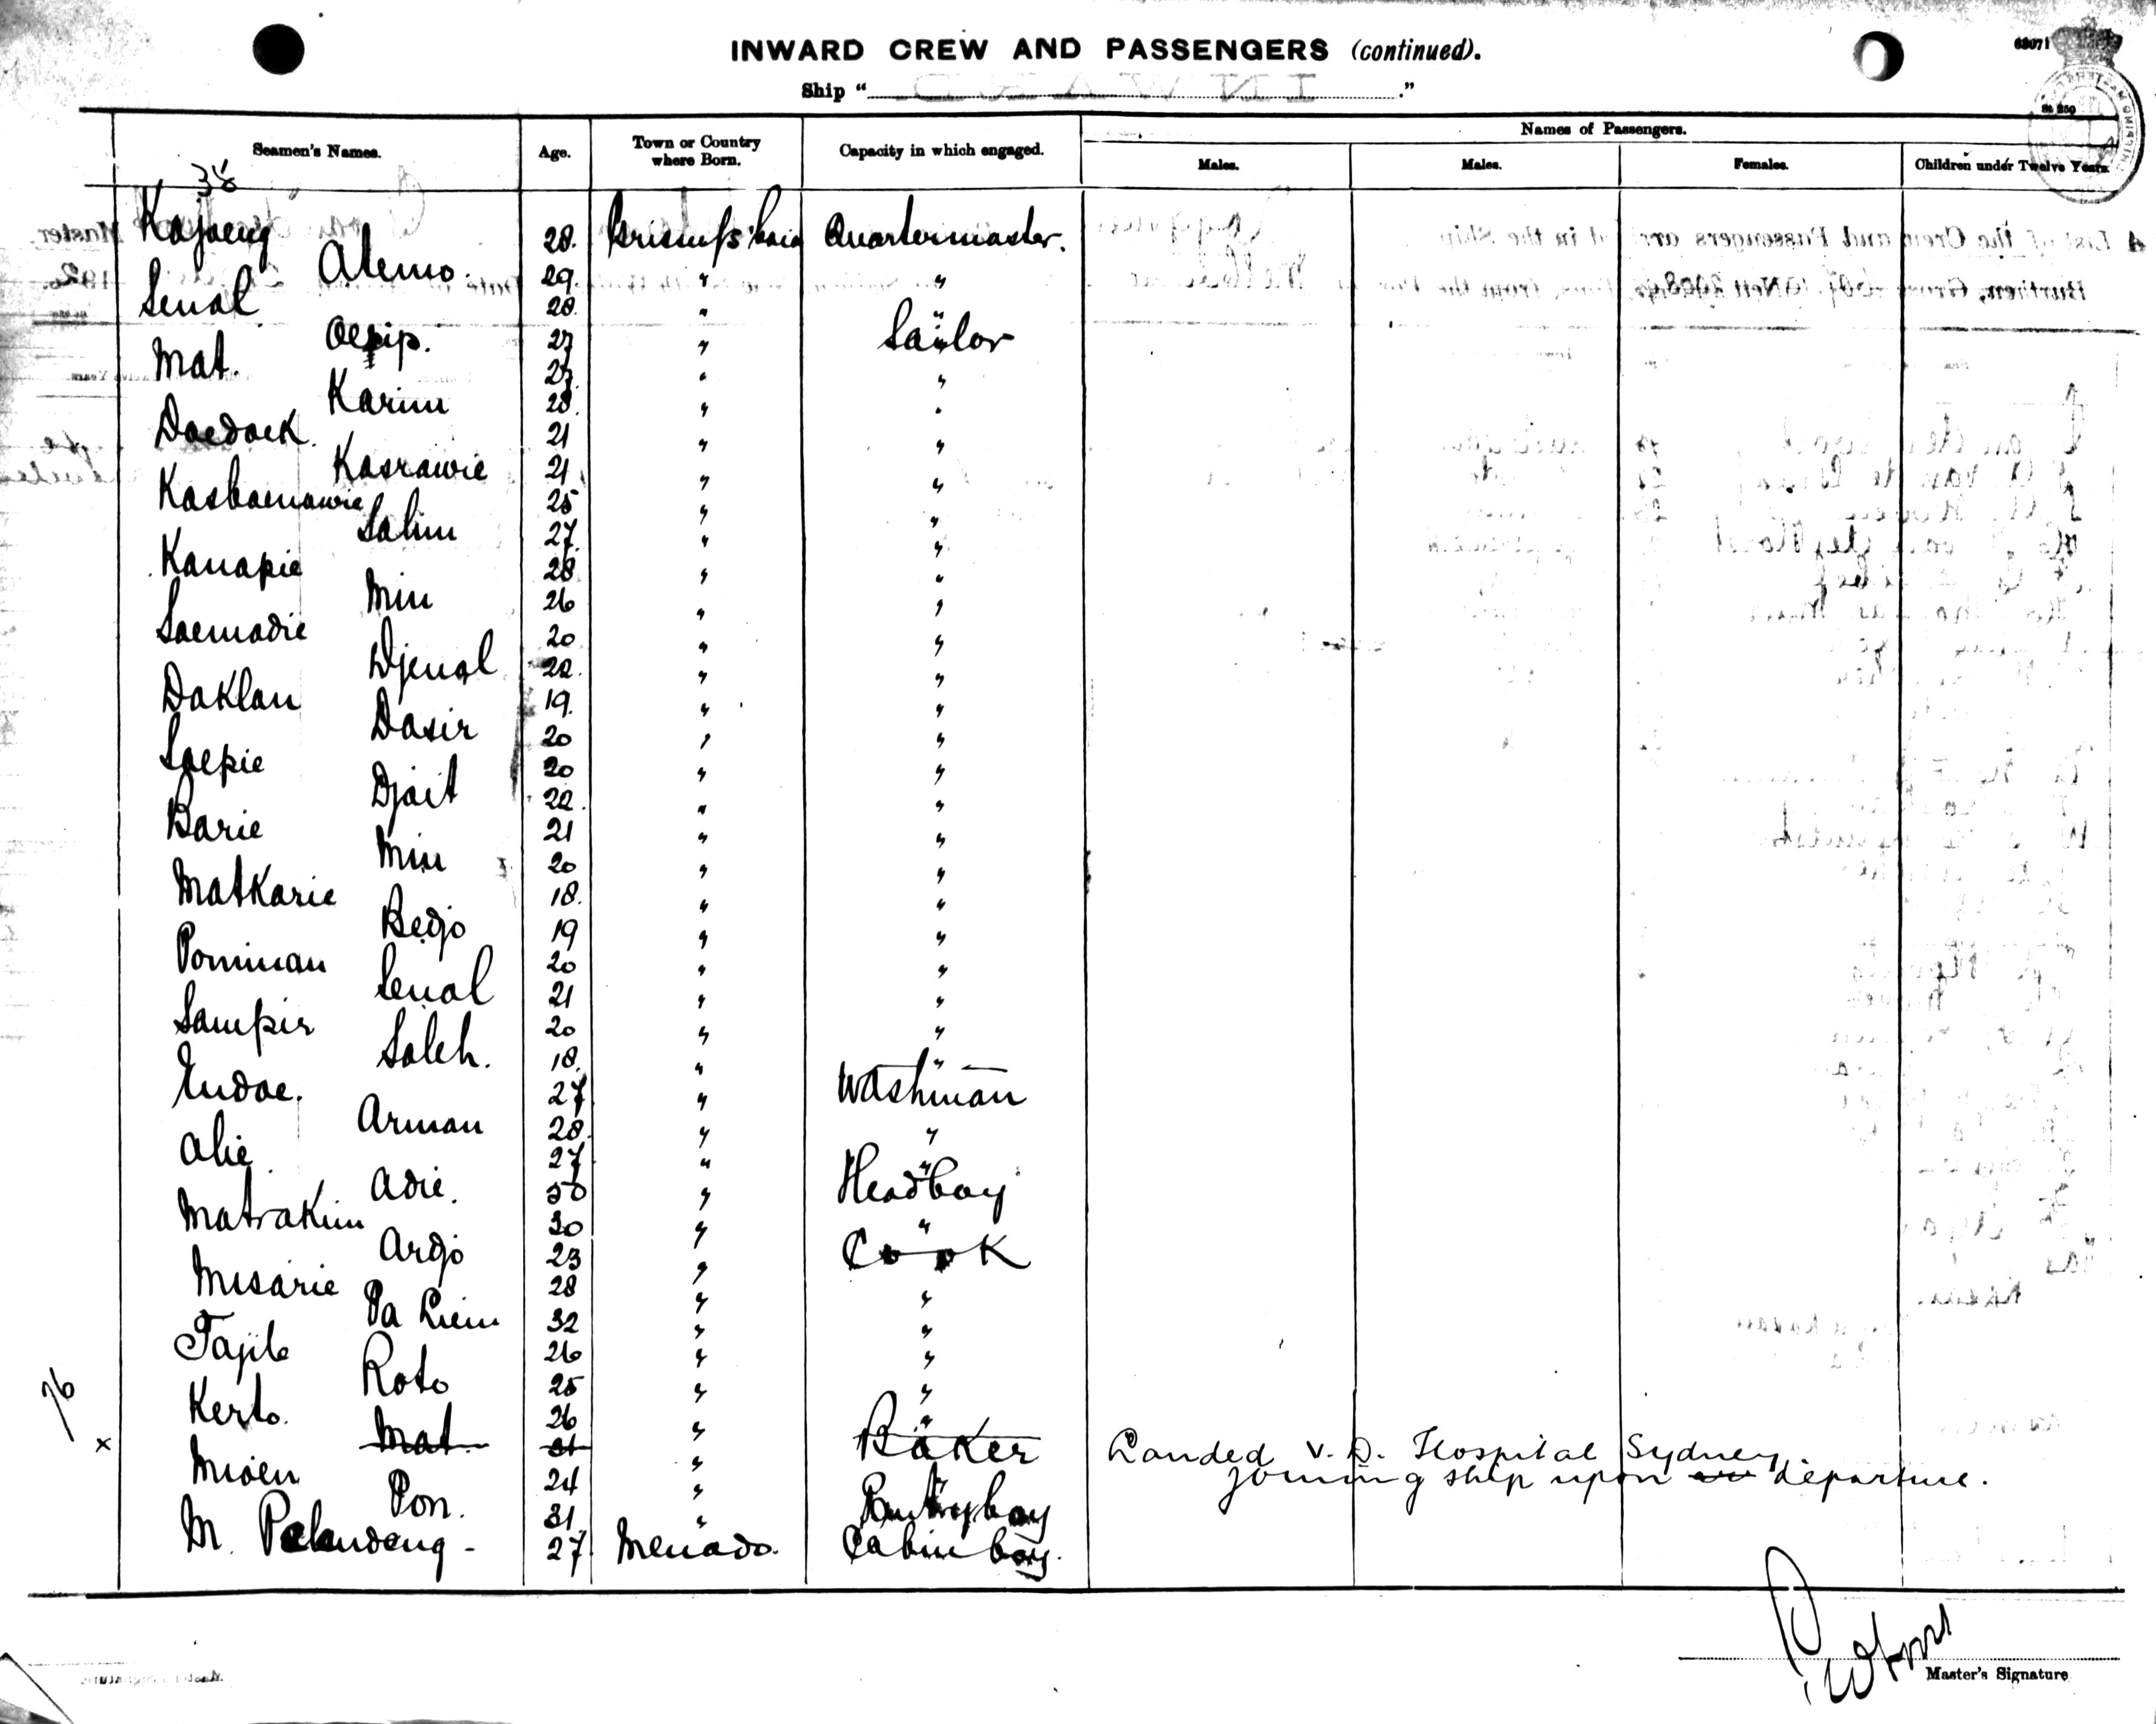 INWARD CREW AND PASSENGERS (continued).
63071
Ship " ."
Seamen's Names. Age. Town or Country where Born. Capacity in which engaged. Names of Passengers.
Males. Males. Females. Children under Twelve Years.
38
Kajoeng 28. Quartermaster.
Atemo. 29. " "
Senal 28. " "
Oesip. 27 " Sailor
Mat. 27. " "
Karim 28. " "
Doedoek. 21 " "
Kasrawie 21 " "
Kasboenawie 25 " "
Salim 27. " "
Kanapie 28 " "
Min 26 " "
Soemodie 20 " "
Djenal 22. " "
Doklan 19. " "
Dasir 20 " "
Soepie 20 " "
Djait 22. " "
Barie 21 " "
Min 20 " "
Matkarie 18. " "
Bedjo 19 " "
Poniman 20 " "
Senal 21 " "
Sampir 20 " "
Saleh. 18. " "
Endoe. 27 " Washman
Arman 28. " "
Alie 27 " "
Adie. 50 " Headboy
Matrakim 30 " "
Ardjo 23 " Cook
Misarie 28 " "
Pa Liem 32 " "
Tajib 26 " "
Roto 25 " "
Kerto. 26 " "
76 x Mat. 31 " Baker Landed V.D. Hospital Sydney
joining ship upon departure.
Mioen 24 " "
Pon. 31. " Pantryboy
M. Pelendeng - 27. Menado. Cabin boy.
Master's Signature